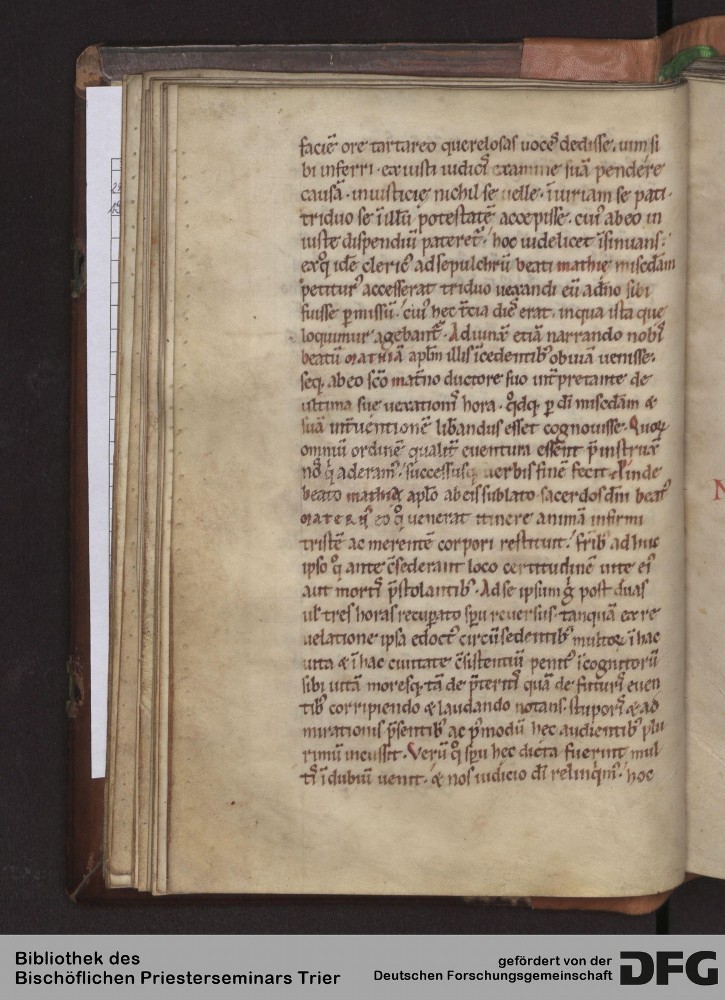 faciē ore tartareo querelosas uoces dedisse. uim si
bi inferri. ex iusti iudicꝭ examine suā pendere
causā. iniusticię nichil se uelle. īiuriam se pati.
triduo se ī illū potestatē accepisse. cuiꝰ ab eo in
iuste dispendiū pateretꝛ. hoc uidelicet īsinuans.
ex qͦ idē clericꝰ ad sepulchrū beati mathię misc̄dam
petiturꝰ accesserat triduo uexandi eū a dn̄o sibi
fuisse ꝑmissū. cuiꝰ hec t̄cia dies erat. in qua ista que
loquimur agebantꝛ. Adiunx̄ etiā narrando nobꝭ
beatū MATHIĀ apl̄m illis īcedentibꝰ obuiā uenisse.
seqꝫ ab eo sc̄o mat̄no ductore suo int̄pretante de
ultima sue uexationꝭ hora. qͦdqꝫ ꝑ di misc̄dam ⁊
suā int̄uentionē lib̄andus esset cognouisse. Quoꝝ
omniū ordinē qualit̄ euentura essent p̄instruxē
nos qͥ aderamꝰ. successusqꝫ uerbis finē fecit. Deinde
beato mathia aplo ab eis sublato sacerdos dn̄i beatꝰ
MATERNꝰ eo qͦ uenerat itinere animā infirmi
tristē ac merentē corpori restituit. fr̄ibꝰ adhuc
ipso qͦ ante c̄sederant loco certitudinē uite eiꝰ
aut mortꝭ p̄stolantibꝰ. Ad se ipsum gͥ post duas
ul̄ tres horas recuꝑato spū reuersus. tanquā ex re
uelatione ipsa edoctꝰ circūsedentibꝰ multoꝝ ī hac
uita ⁊ ī hac ciuitate c̄sistentiū penitꝰ īcognitorū
sibi uitā moresqꝫ tā de p̄teritꝭ quā de futurꝭ euen
tibꝰ corripiendo ⁊ laudando notans. stuporꝭ ⁊ ad
mirationis p̄sentibꝰ ac p̄modū hec audientibꝰ plu
rimū incussit. Verū qͦ spū hec dicta fuerint mul
tꝭ ī dubiū uenit. ⁊ nos iudicio di relinqͥmꝰ. hoc
Bibliothek des
Bischöflichen Priesterseminars Trier
gefördert von der
Deutschen Forschungsgemeinschaft
DFG